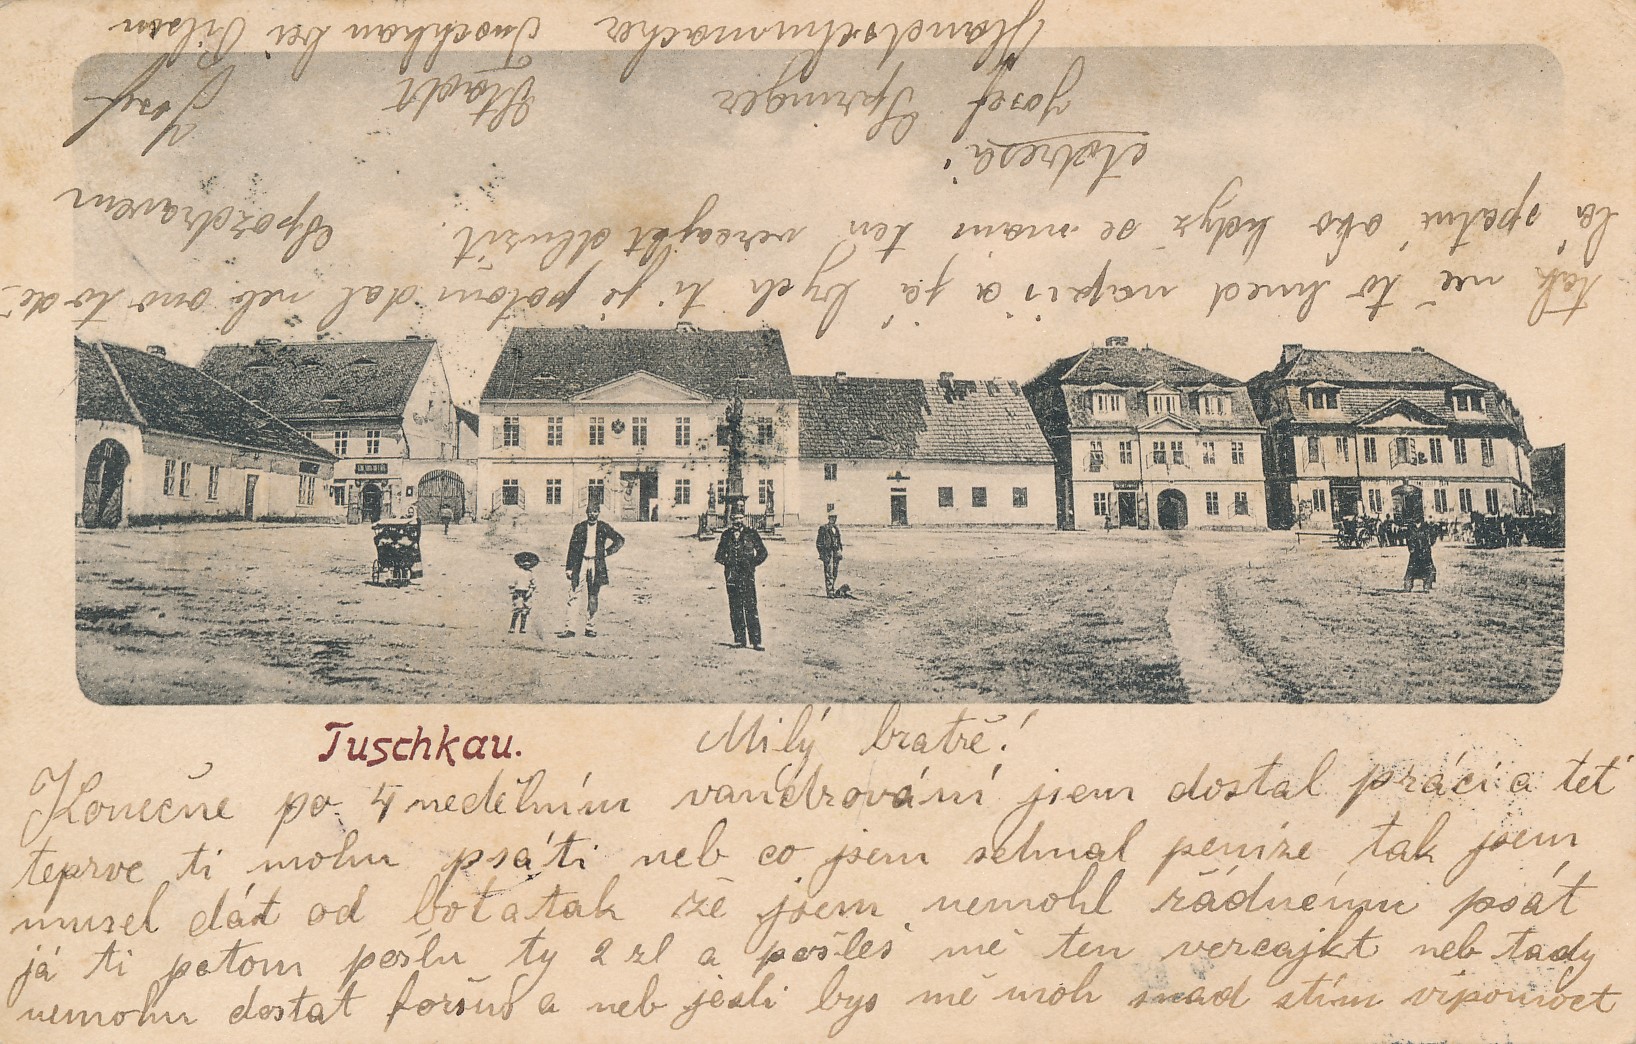 Tuschkau.
Milý bratře!
Konečne po 4 nedělním vandrování jsem dostal práci a teť
teprve ti mohu psáti neb co jsem sehnal peníze tak jsem
musel dát od bot a tak že jsem nemohl řádnému psát
já ti potom pošlu ty 2 zl a pošleš mě ten vercajkt neb tady
nemohu dostat foršus a neb jesli bys mě moh snad stím vipomoct
tak mě to hned napiš a já bych ti je potom dal neb ono to dě-
lá spatní oko když se mám ten vercajkt dlužit. Spozdravem
Adresa:
Josef Springer Stadt Josef
Handschumacher Tuschkau bei Pilsen